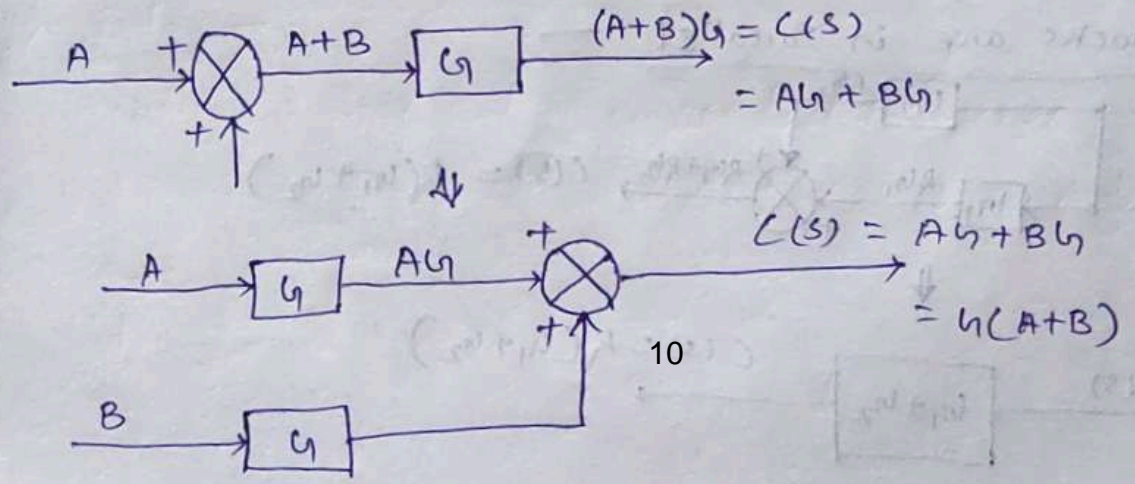 A + A+B G (A+B)G = C(S)
+ = AG + BG
A G AG + C(S) = AG + BG
+ = G(A+B)
10
B G